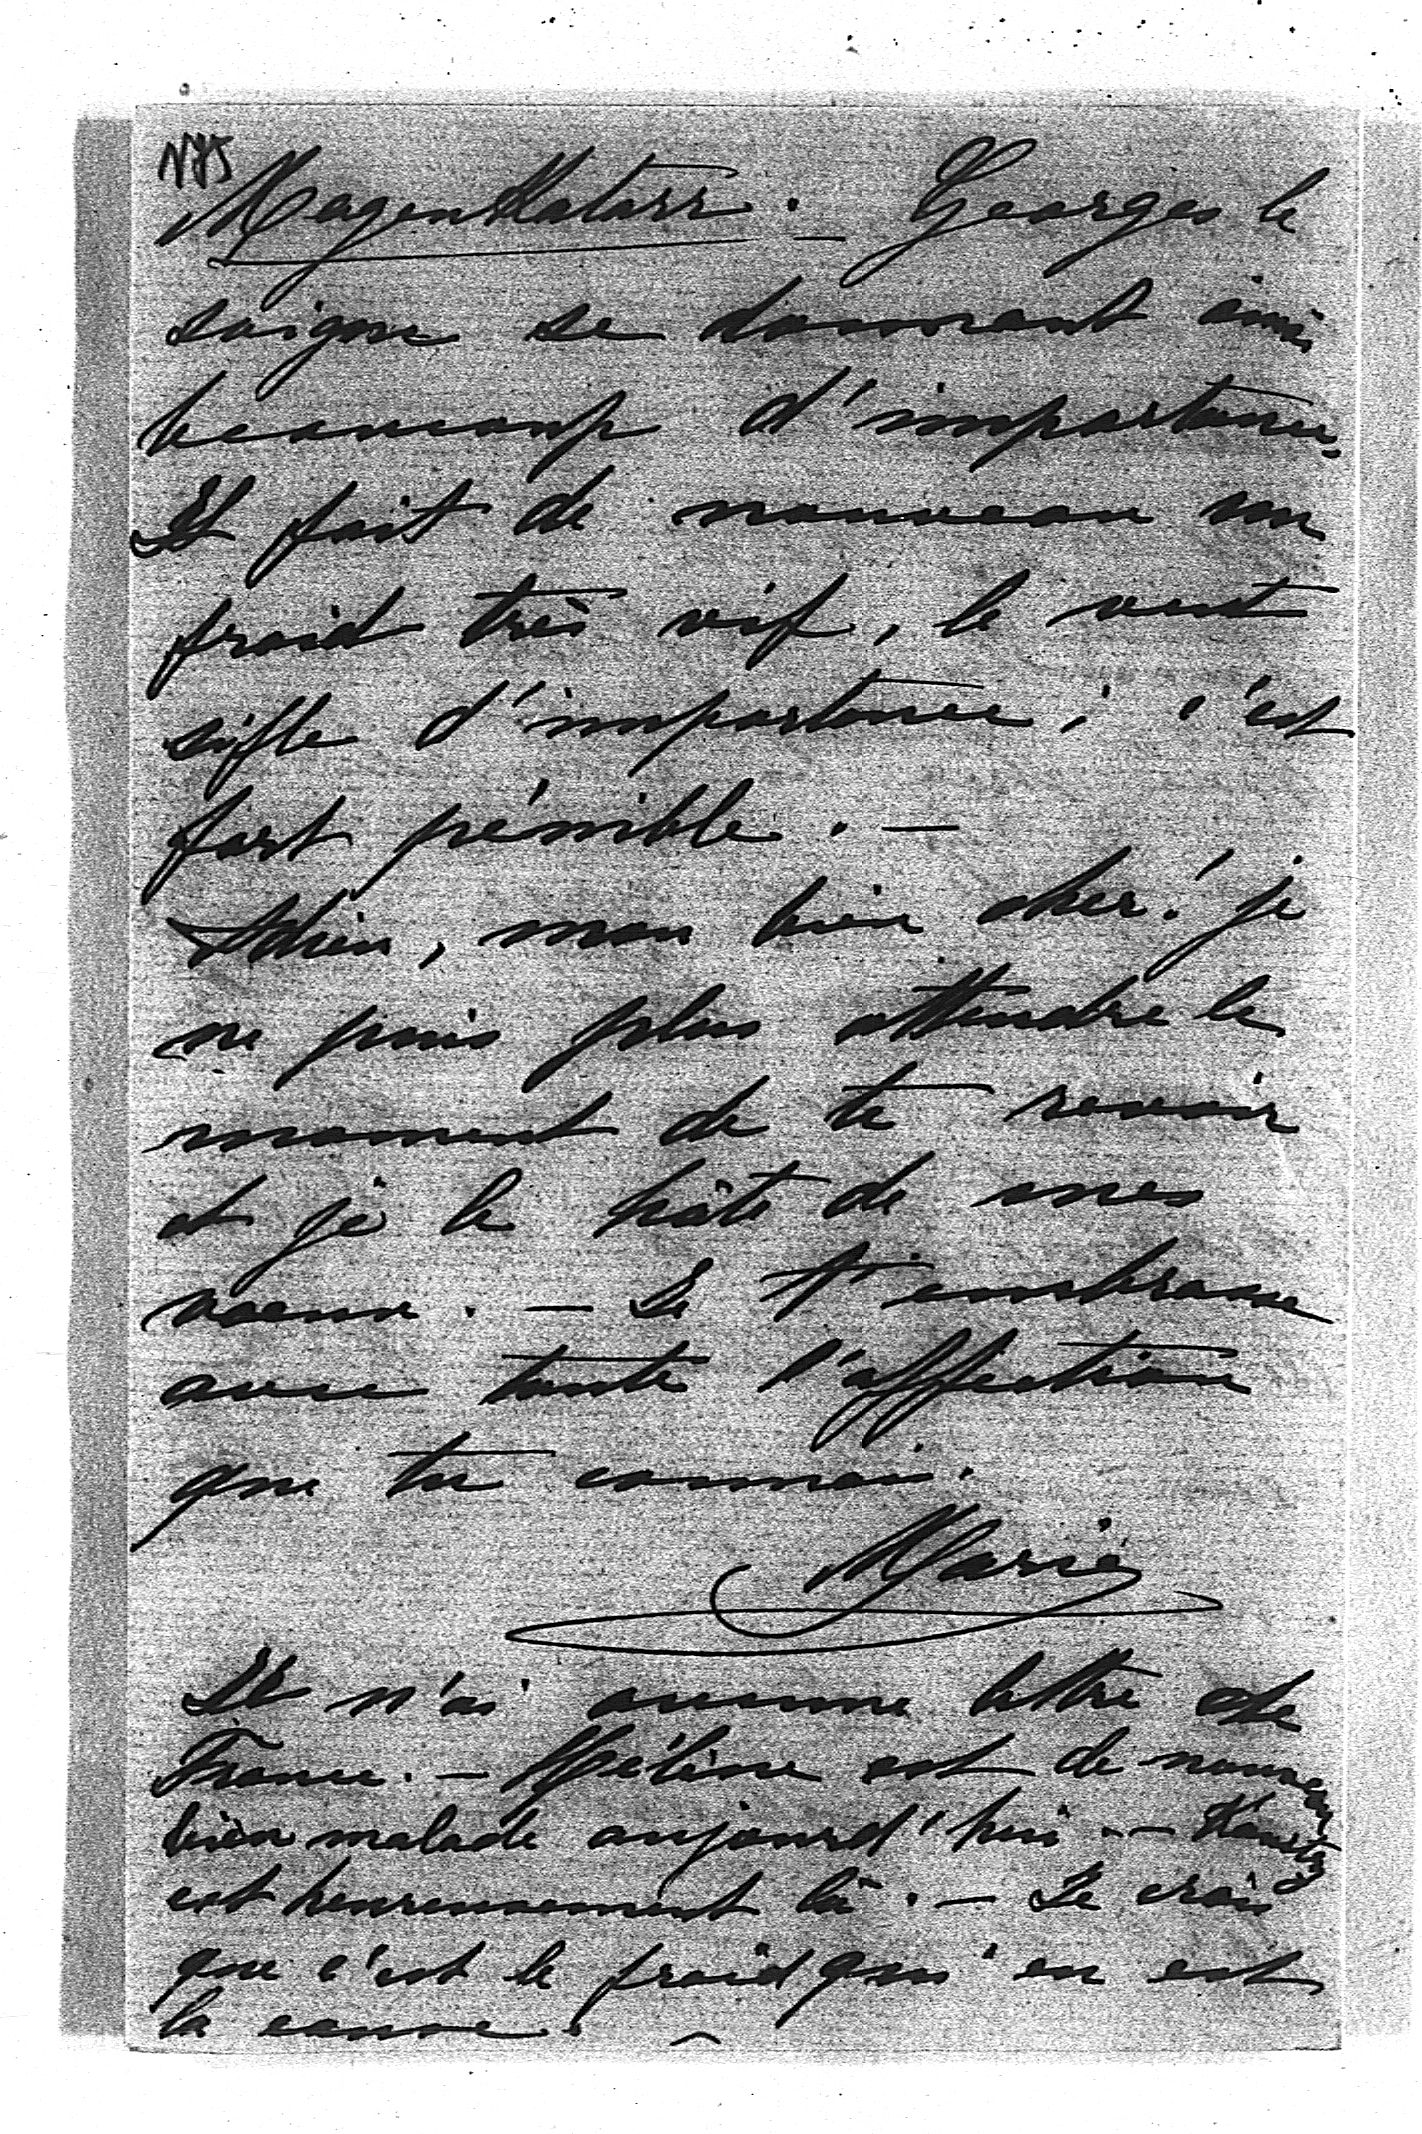 N85
Magenkatarr. — Georges le
soigne se donnant ainsi
beaucoup d'importance.
Il fait de nouveau un
froid très vif, le vent
siffle d'importance; c'est
fort pénible. —
Adieu, mon bien cher! je
ne puis plus attendre le
moment de te revoir
et je le hâte de mes
voeux. — Je t'embrasse
avec toute l'affection
que tu connais.
Marie
Je n'ai aucune lettre de
France. — Hélène est de nouveau
bien malade aujourd'hui. —
est heureusement là. — Je crois
que c'est le froid qui en est
la cause.